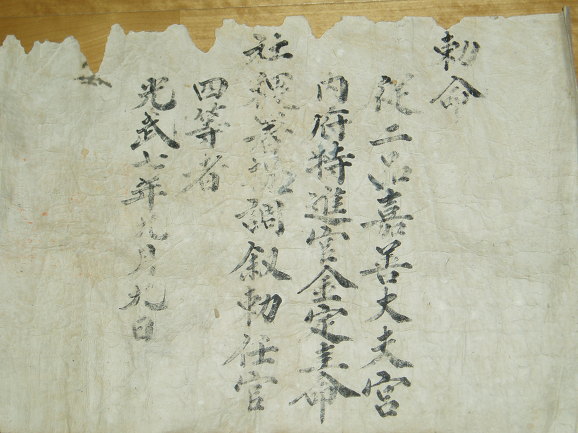 勅命
從二品嘉善大夫宮
内府特進官金定圭命
社稷署提調叙勅任官
四等者
光武七年九月九日